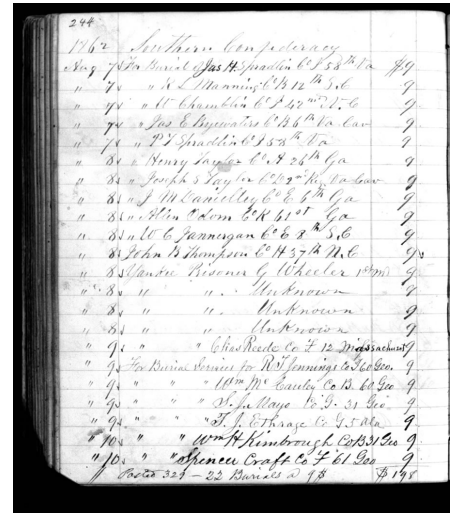 244
1862 Southern Confederacy
Aug 7 For Burial of Jas H. Spradlin Co I 58th Va $9
" 7 " R L Manning Co B 12th S.C 9
" 7 " W Chamblin Co I 42nd N.C 9
" 7 " Jas E Byewaters Co B 6th Va Cav 9
" 7 " P T Spradlin Co I 58th Va 9
" 8 " Henry Taylor Co A 26th Ga 9
" 8 " Joseph S Taylor Co D 2nd Va Cav 9
" 8 " J M Danielley Co E 6th Ga 9
" 8 " Allen Odom Co K 61st Ga 9
" 8 " W C Fannergan Co E 8th S.C 9
" 8 John B Thompson Co H 37th N.C 9
" 8 Yankee Prisoner G Wheeler 1st 9
" 8 " " Unknown 9
" 8 " " Unknown 9
" 8 " " Unknown 9
" 9 " " Chas Reede Co F 12 Massachusetts 9
" 9 For Burial Services for R T Jennings Co I 60 Geo. 9
" 9 " " Wm Mc Cauley Co B. 60 Geo 9
" 9 " " T. J. Mayo Co G. 31 Geo 9
" 9 " " T. J. Ethrage Co G. 5 Ala 9
" 10 " " Wm H Kimbrough Co B 31 Geo 9
" 10 " " Spencer Craft Co F 61 Geo 9
Posted 329 — 22 Burials a 9$ $198